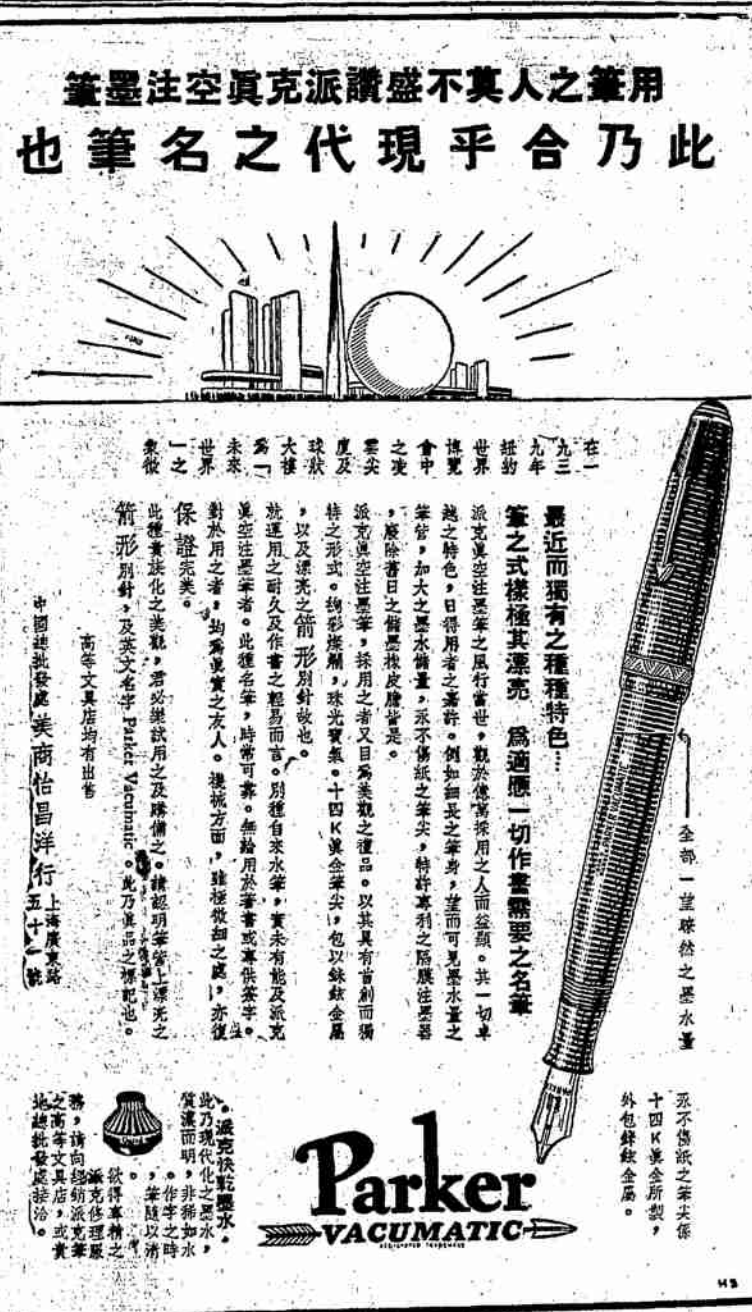 用筆之人莫不盛讚派克眞空注墨筆
此乃合乎現代之名筆也
在一
九三
九年
紐約
世界
博覽
會中
之凌
雲尖
度及
球狀
大樓
爲「
未來
世界
」之
象徵
最近而獨有之種種特色⋯
筆之式樣極其漂亮 爲適應一切作書需要之名筆
派克眞空注墨筆之風行當世，觀於億萬採用之人而益顯。其一切卓
越之特色，日得用者之嘉許。例如細長之筆身，望而可見墨水量之
筆管，加大之墨水儲量，永不傷紙之筆尖，特許專利之隔膜注墨器
，廢除舊日之儲墨橡皮膽皆是。
派克眞空注墨筆，採用之者又目爲美觀之禮品。以其具有首創而獨
特之形式。絢彩燦爛，珠光寶氣。十四K眞金筆尖，包以銥鉉金屬
，以及漂亮之箭形別針故也。
就運用之耐久及作書之輕易而言。別種自來水筆，實未有能及派克
眞空注墨筆者。此種名筆，時常可靠。無論用於著書或專供簽字。
對於用之者，均爲眞實之友人。機械方面，雖極微細之處，亦復
保證完美。
此種貴族化之美觀，君必樂試用之及購備之。請認明筆管上漂亮之
箭形別針，及英文名字 Parker Vacumatic。此乃眞品之標記也。
高等文具店均有出售
中國總批發處 美商怡昌洋行 上海廣東路
五十一號
全部一望瞭然之墨水量
永不傷紙之筆尖係
十四K眞金所製，
外包銥鉉金屬。
Parker
VACUMATIC
REGISTERED TRADEMARK
。派克快乾墨水。
此乃現代化之墨水，
質濃而明，非稀如水
。作字之時
，筆隨以清
。
欲得專精之
派克修理服
務，請向經銷派克筆
之高等文具店，或貴
地總批發處接洽。